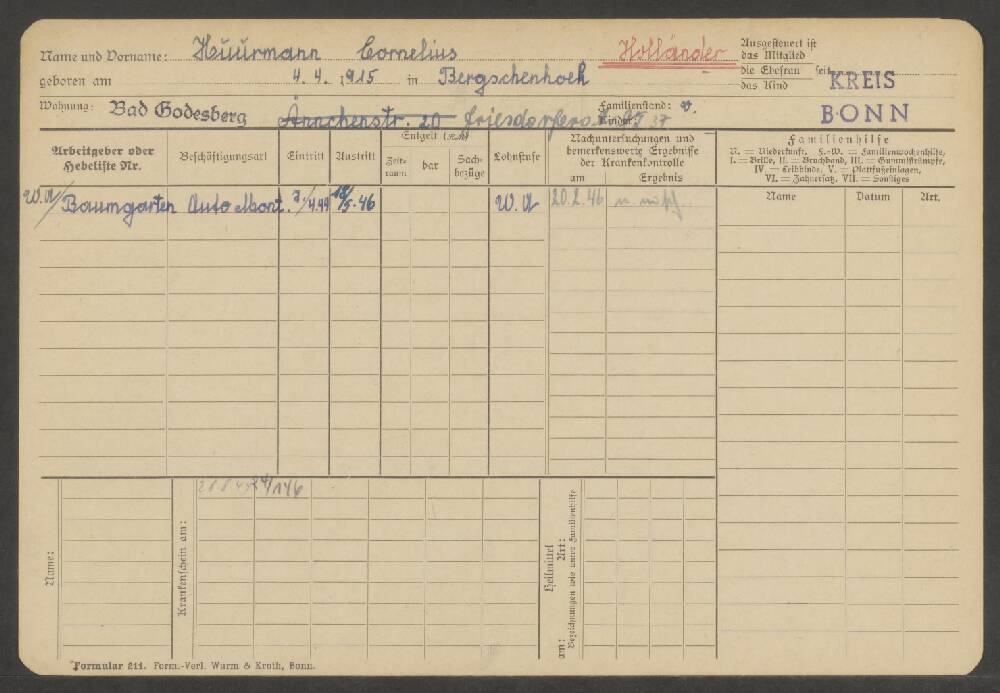 Name und Vorname: Huurmann Cornelius Holländer
Ausgesteuert ist
das Mitglied
die Ehefrau seit
das Kind
KREIS
BONN
geboren am 4. 4. 1915 in Bergschenhoek
Wohnung: Bad Godesberg Annchenstr. 20 Friesdorferstr. 37
Familienstand: v.
Kinder:
Arbeitgeber oder
Hebeliste Nr.
Beschäftigungsart
Eintritt
Austritt
Entgelt (RM)
Zeit-
raum
bar
Sach-
bezüge
Lohnstufe
Nachuntersuchungen und
bemerkenswerte Ergebnisse
der Krankenkontrolle
am
Ergebnis
Familienhilfe
N. = Niederkunft, F.-W. = Familienwochenhilfe,
I. = Brille, II. = Bruchband, III. = Gummistrümpfe,
IV. = Leibbinde, V. = Plattfußeinlagen,
VI. = Zahnersatz, VII. = Sonstiges
Name
Datum
Art.
W. A/ Baumgarten Auto Mont. 3./4.44 18/5.46 W. A 20.2.46
Name:
Krankenschein am:
Heilmittel
am: Art:
Bezeichnungen wie unter Familienhilfe
Formular 211. Form.-Verl. Wurm & Kroth, Bonn.